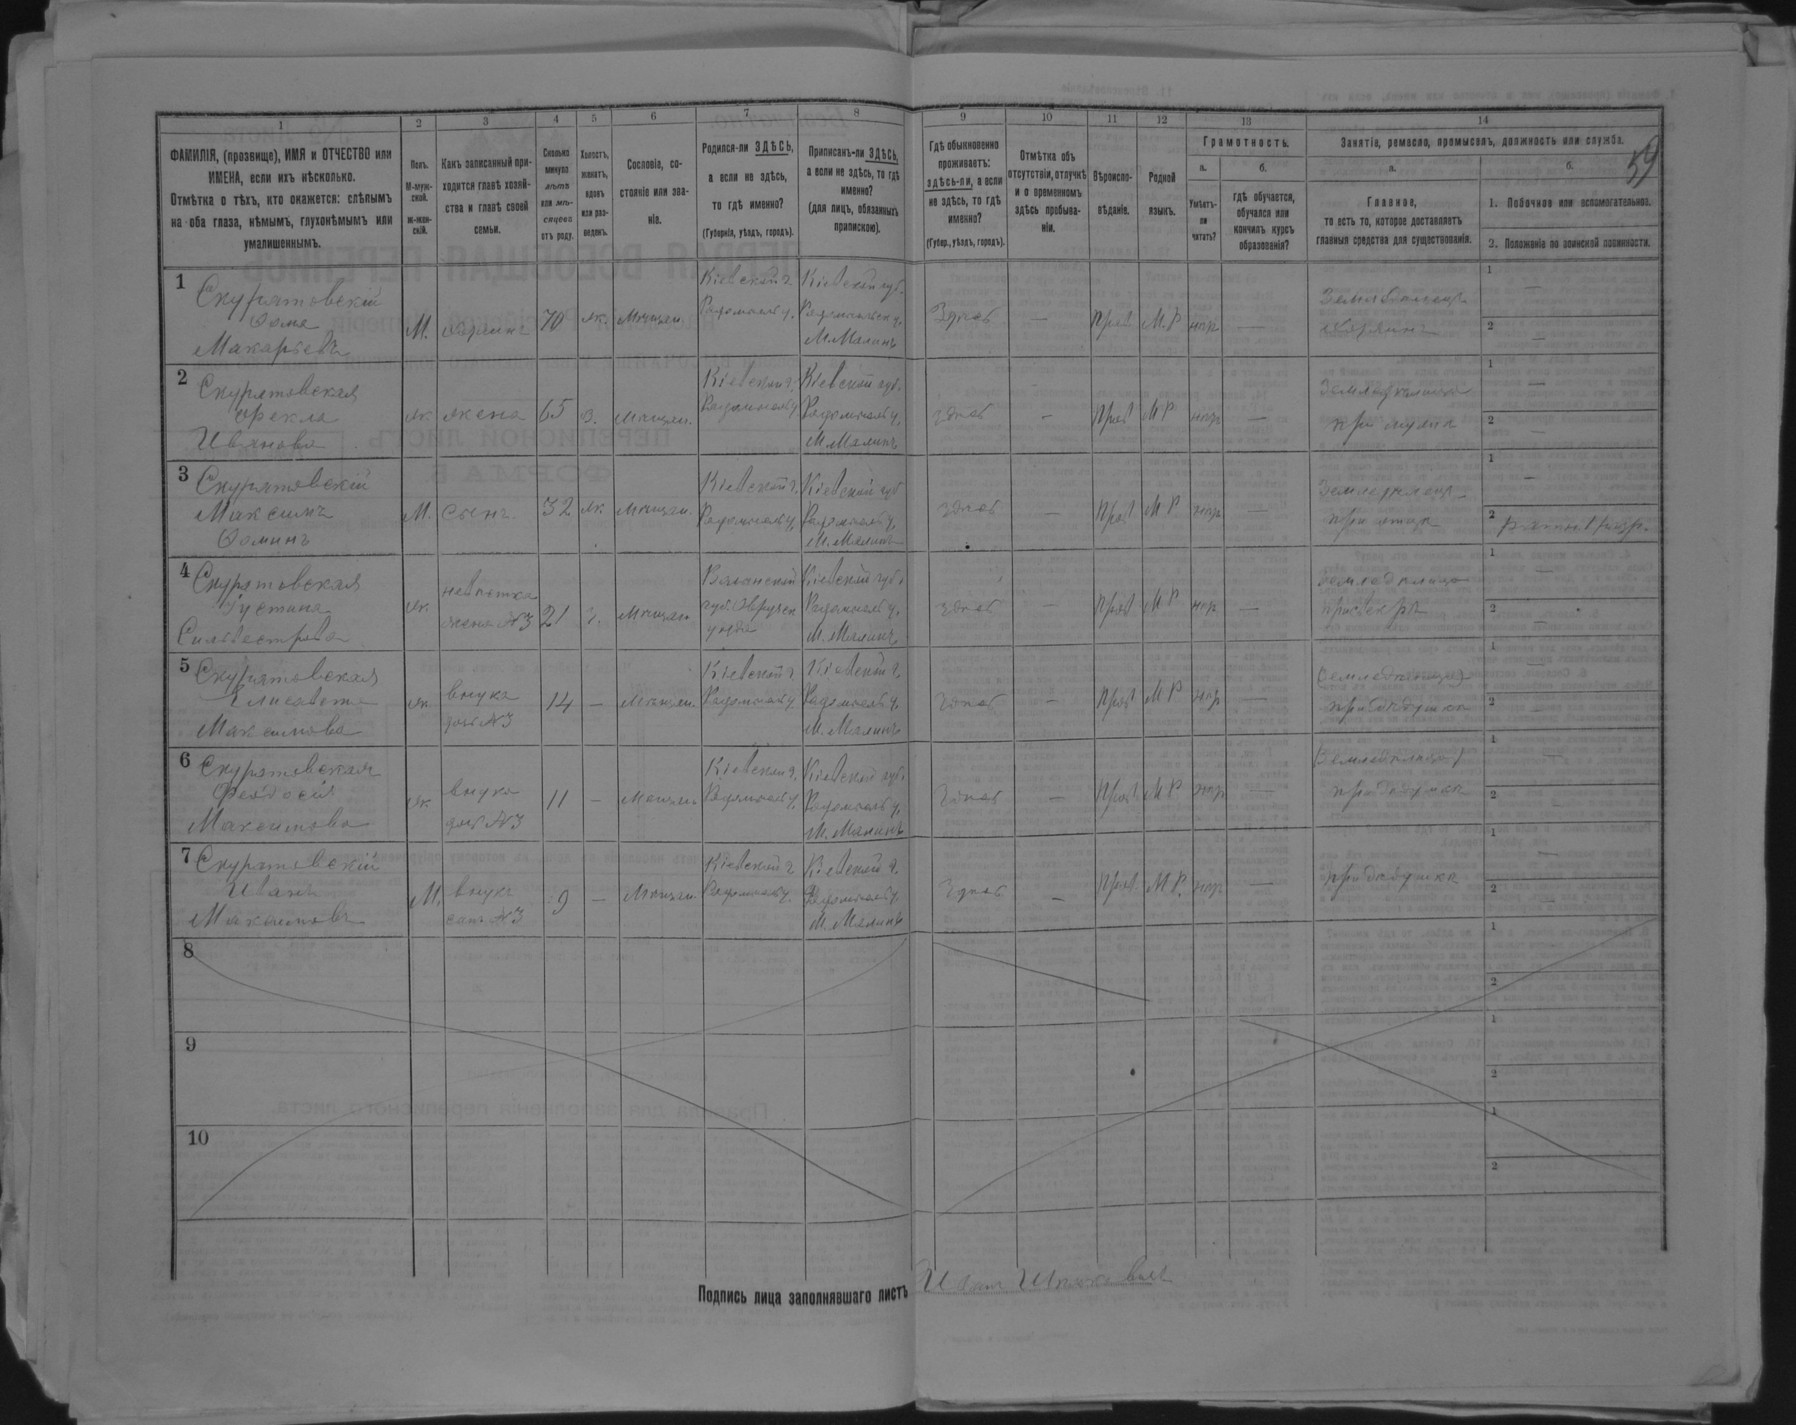 59
1 2 3 4 5 6 7 8 9 10 11 12 13 14
ФАМИЛІЯ, (прозвище), ИМЯ и ОТЧЕСТВО или ИМЕНА, если ихъ нѣсколько.
Отмѣтка о тѣхъ, кто окажется: слѣпымъ на оба глаза, нѣмымъ, глухонѣмымъ или умалишеннымъ.
Полъ.
М-муж-ской.
Ж-жен-скій.
Какъ записанный при-ходится главѣ хозяй-ства и главѣ своей семьи.
Сколько минуло лѣтъ или мѣ-сяцевъ отъ роду.
Холостъ, женатъ, вдовъ или раз-веденъ.
Сословіе, со-стояніе или зва-ніе.
Родился-ли ЗДѢСЬ, а если не здѣсь, то гдѣ именно?
(Губернія, уѣздъ, городъ).
Приписанъ-ли ЗДѢСЬ, а если не здѣсь, то гдѣ именно?
(для лицъ, обязанныхъ припискою).
Гдѣ обыкновенно проживаетъ: здѣсь-ли, а если не здѣсь, то гдѣ именно?
(Губер., уѣздъ, городъ).
Отмѣтка объ отсутствіи, отлучкѣ и о временномъ здѣсь пребыва-ніи.
Вѣроиспо-вѣданіе.
Родной языкъ.
Грамотность.
а.
Умѣетъ-ли читать?
б.
гдѣ обучается, обучался или кончилъ курсъ образованія?
Занятіе, ремесло, промыселъ, должность или служба.
а.
Главное, то есть то, которое доставляетъ главныя средства для существованія.
б.
1. Побочное или вспомогательное.
2. Положеніе по воинской повинности.
1 Скуратовскій Фома Макарьевъ М. хозяинъ 70 ж. мѣщан. Кіевской г. Радомысль у. Кіевской губ. Радомысльск у. М. Малинъ Здѣсь — Прав М. Р нѣт — Земледѣлецъ хозяинъ 1 — 2 —
2 Скуратовская Фекла Иванова ж. жена 65 з. мѣщан. Кіевской г. Радомысль у. Кіевской губ. Радомысль у. М. Малинъ здѣсь — Прав М Р нѣт — при мужѣ 1 — 2 —
3 Скуратовскій Максимъ Фоминъ М. сынъ 32 ж. мѣщан. Кіевской г. Радомысль у. Кіевской губ Радомысль у. М. Малинъ здѣсь — Прав М Р нѣт — Земледѣлецъ при отцѣ 1 — 2
4 Скуратовская Устина Сильвестрова ж. невѣстка жена №3 21 з. мѣщан Волынской губ. Овручск уѣзда Кіевской губ. Радомысль у. М. Малинъ здѣсь — Прав М Р нѣт — при свекрѣ 1 — 2 —
5 Скуратовская Елисавета Максимова ж. внука дочь №3 14 — мѣщан. Кіевской г Радомысль у. Кіевской г. Радомысль у. М. Малинъ здѣсь — Прав М Р нѣт — при дѣдушкѣ 1 — 2 —
6 Скуратовская Феодосія Максимова ж. внука дочь №3 11 — мѣщан. Кіевской г. Радомысль у. Кіевской губ. Радомысль у. М. Малинъ здѣсь — Прав М Р нѣт — при дѣдушкѣ 1 — 2 —
7 Скуратовскій Иванъ Максимовъ М. внукъ сынъ №3 9 — мѣщан. Кіевской г Радомысль у. Кіевской г. Радомысль у. М. Малинъ здѣсь — Прав М. Р. нѣт — при дѣдушкѣ 1 — 2 —
8 1 2
9 1 2
10 1 2
Подпись лица заполнявшаго листъ